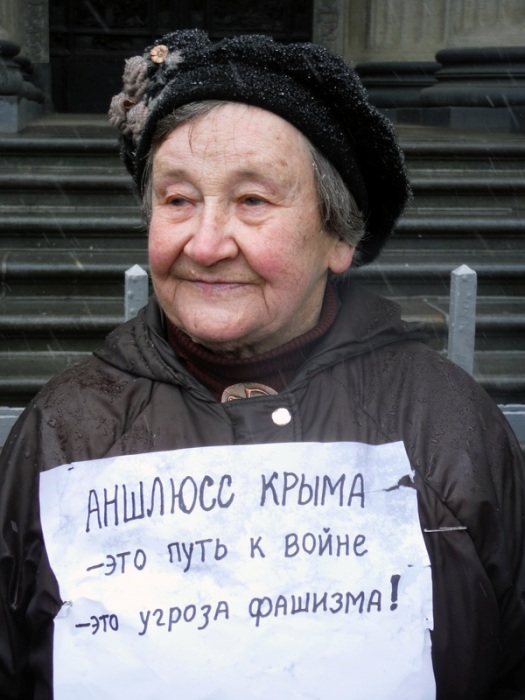 АНШЛЮСС КРЫМА
-ЭТО ПУТЬ К ВОЙНЕ
-ЭТО УГРОЗА ФАШИЗМА!